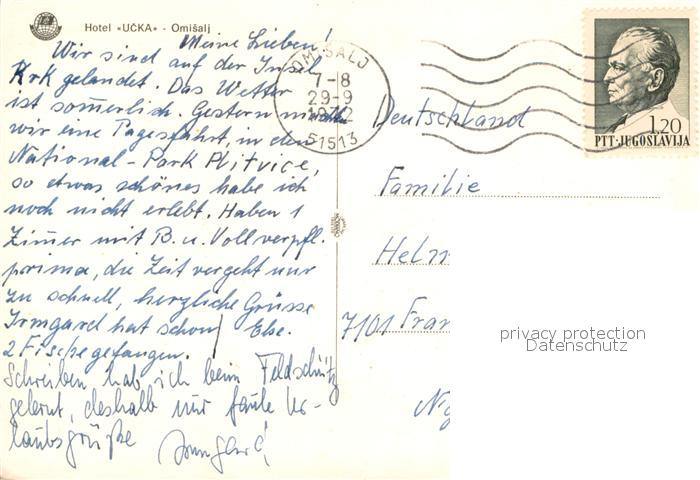 Hotel "UČKA" - Omišalj
Meine Lieben!
Wir sind auf der Insel
Krk gelandet. Das Wetter
ist som̄erlich. Gestern machten
wir eine Tagesfahrt, in den
National-Park Plitvice,
so etwas schönes habe ich
noch nicht erlebt. Haben 1
Zim̄er mit B. u. Vollverpfl.
prima, die Zeit vergeht nur
zu schnell, herzliche Grüsse
Irmgard hat schon / Else.
2 Fische gefangen.
Schreiben hab ich beim Feldschütz
gelernt, deshalb nur faule Ur-
laubsgrüße Irmgard!
OMIŠALJ
7-8
29-9
1972
51513
1.20
PTT-JUGOSLAVIJA
Deutschland
Familie
Helm
7101 Fran
privacy protection
Datenschutz